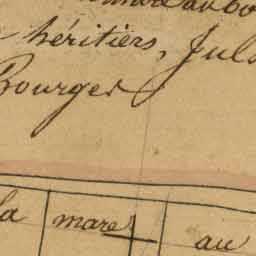 héritiers, Jul
Bourges
la mare au